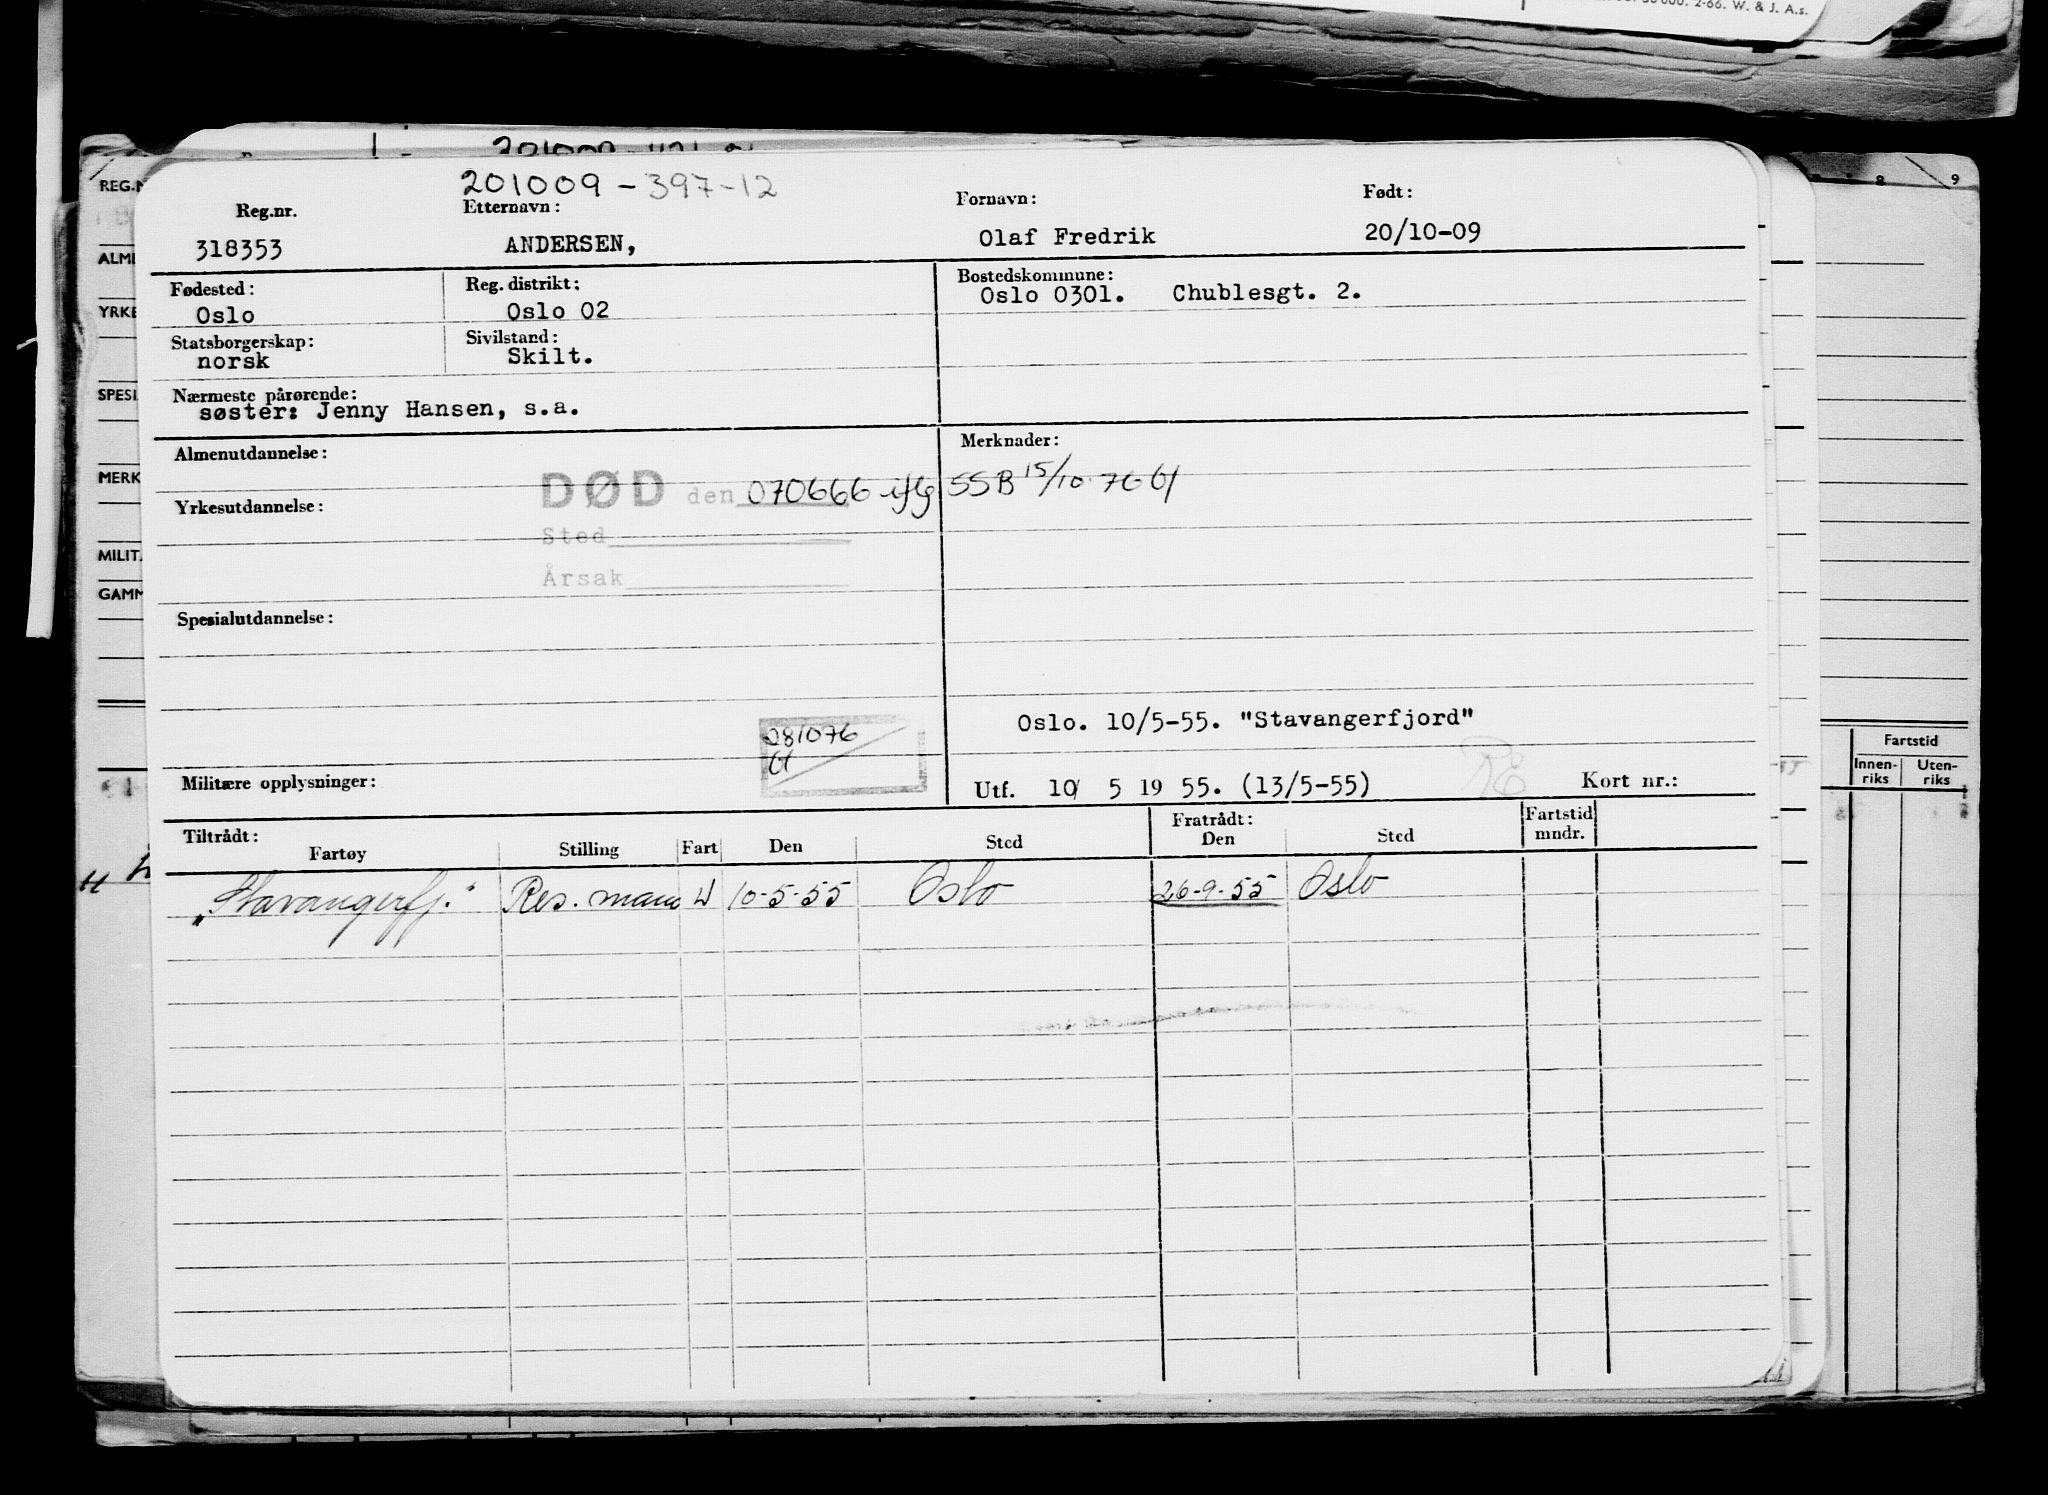 2-66. W. & J. A.s.
201009 - 397-12
Reg.nr. Etternavn: Fornavn: Født:
318353 ANDERSEN, Olaf Fredrik 20/10-09
Fødested: Reg. distrikt: Bostedskommune:
Oslo Oslo 02 Oslo 0301. Chublesgt. 2.
Statsborgerskap: Sivilstand:
norsk Skilt.
Nærmeste pårørende:
søster: Jenny Hansen, s.a.
Almenutdannelse: Merknader:
DØD den 070666 iflg SSB 15/10 76
Yrkesutdannelse:
Sted
Årsak
Spesialutdannelse:
Oslo. 10/5-55. "Stavangerfjord"
281076
Militære opplysninger: Utf. 10/ 5 19 55. (13/5-55) Kort nr.:
Tiltrådt: Fratrådt: Fartstid
Fartøy Stilling Fart Den Sted Den Sted mndr.
"Stavangerfj." Res. mann U 10-5-55 Oslo 26-9-55 Oslo
REG.N
ALME
YRKE
SPESI
MERK
MILIT
GAMM
8 9
Fartstid
Innen- Uten-
riks riks